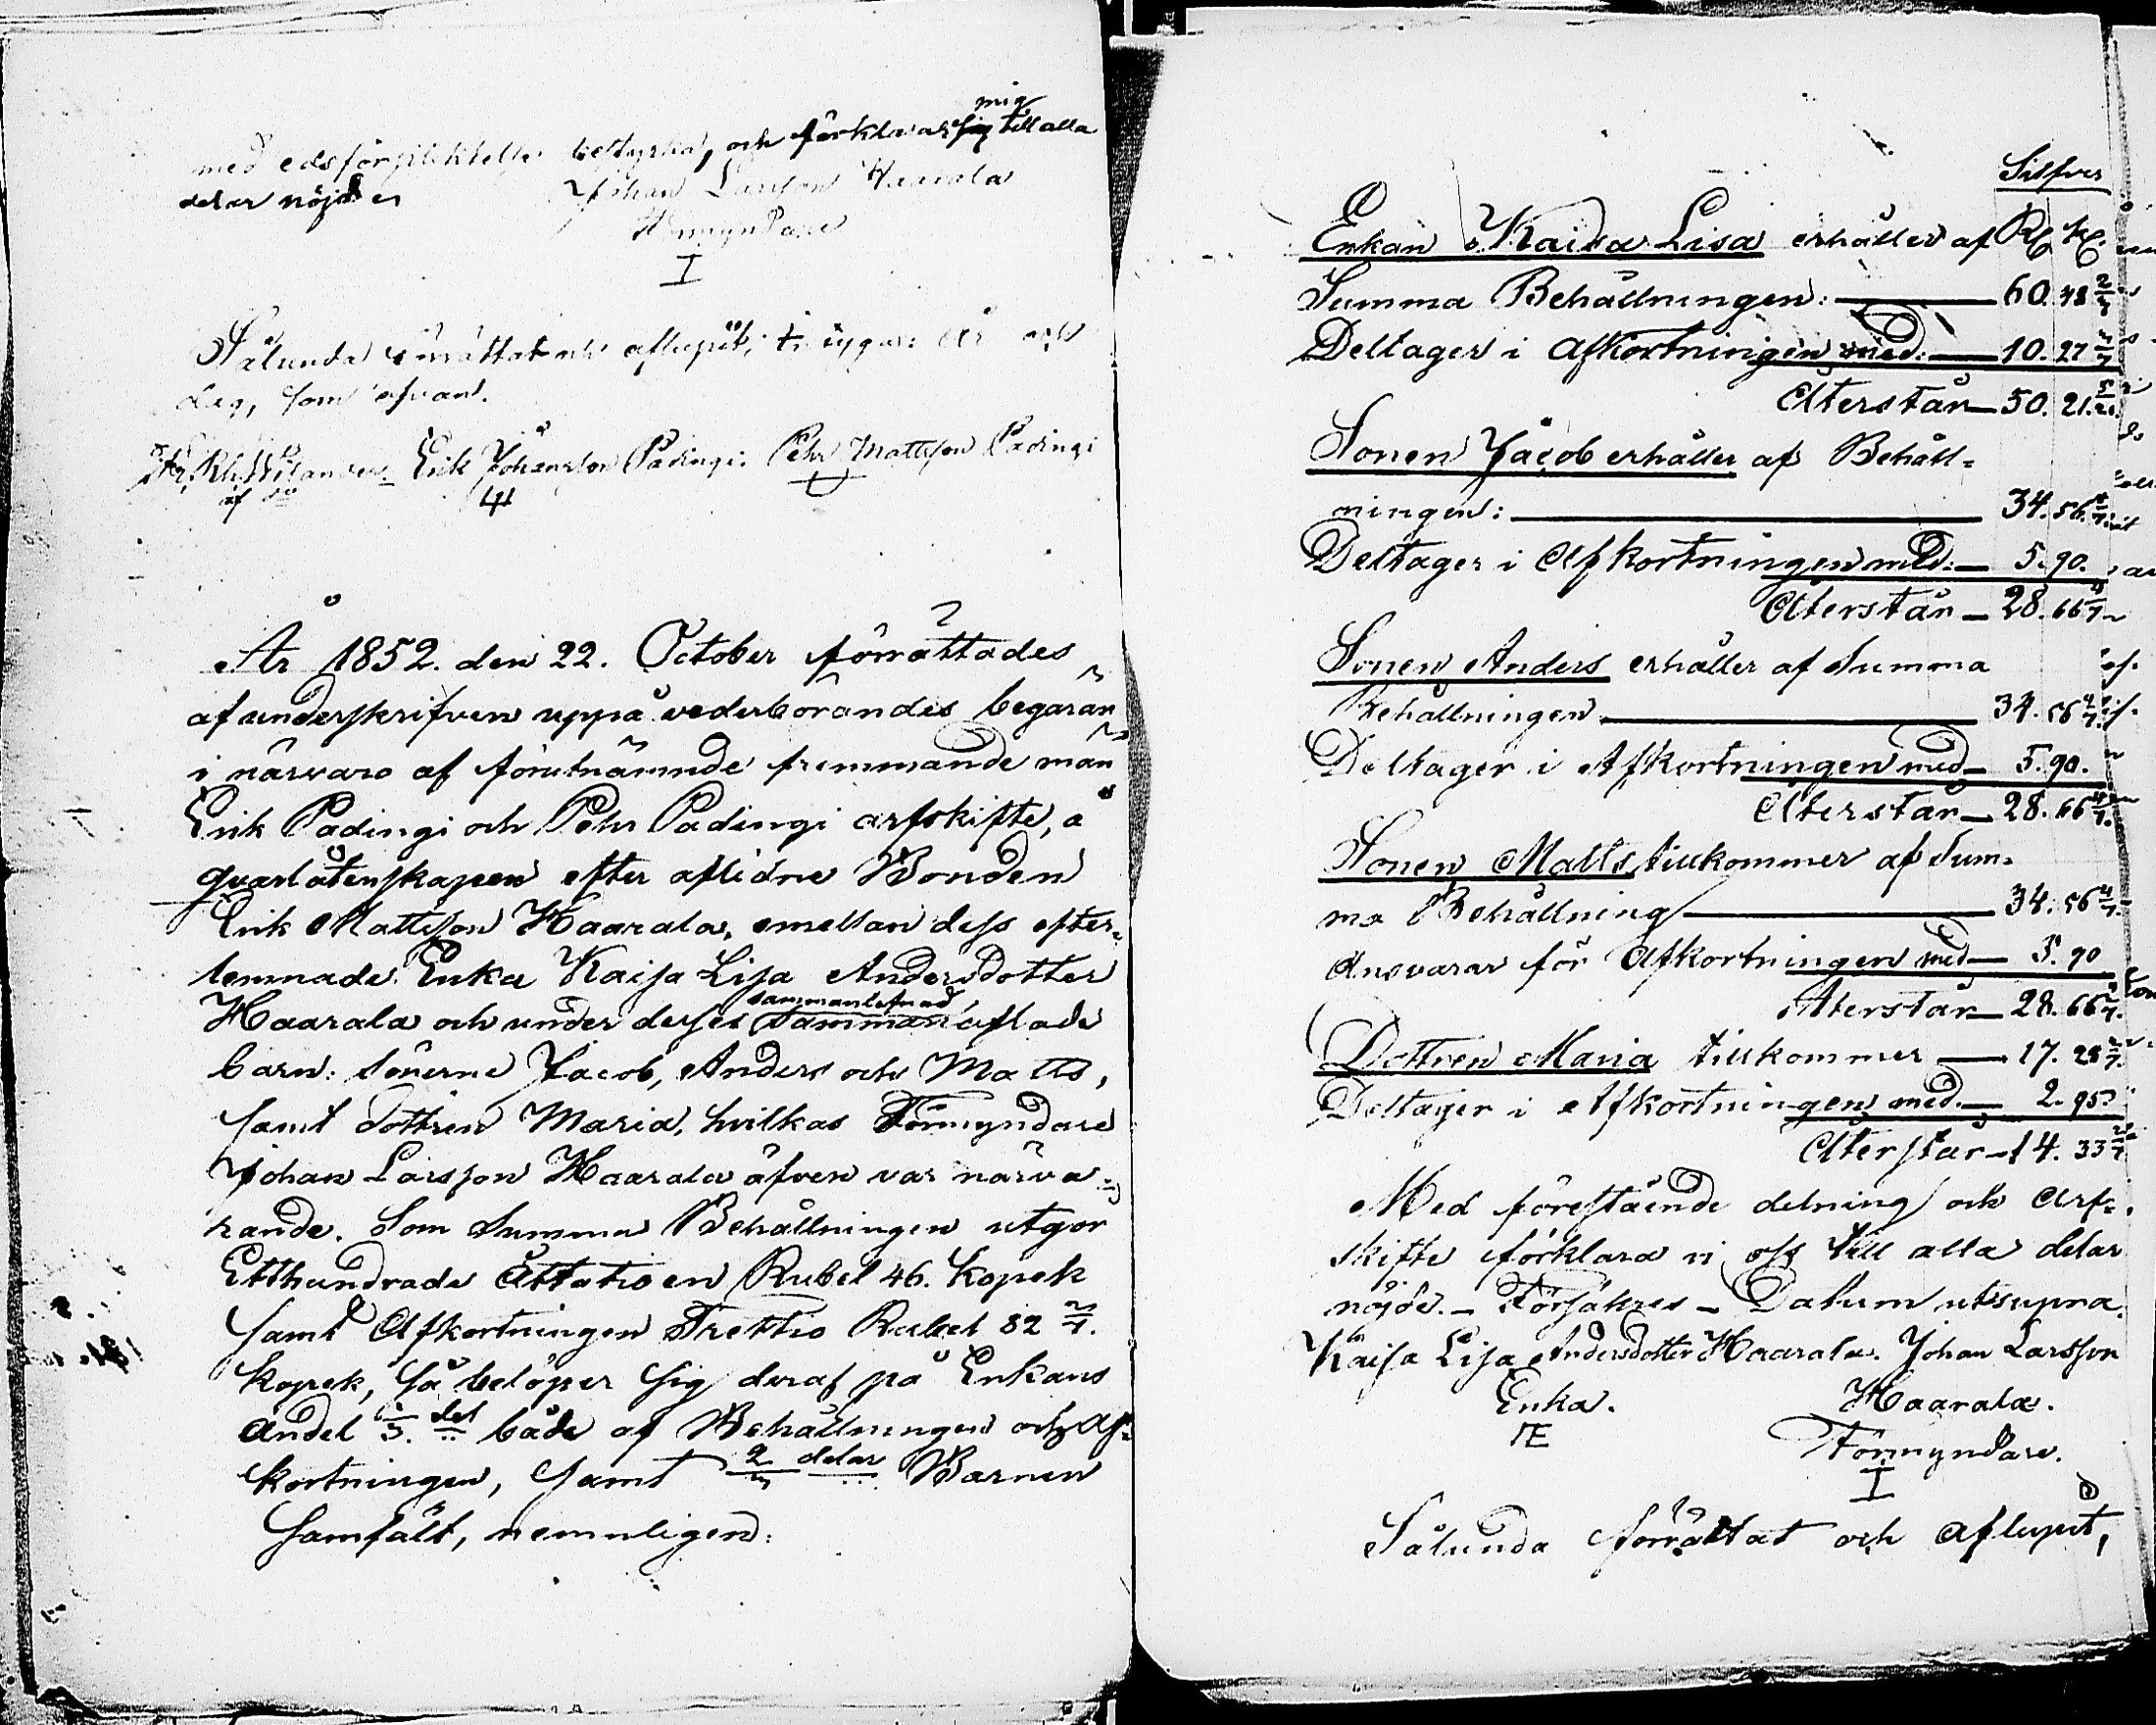 mig
med edsförpliktelse bestyrka, och förklarar sig till alla
delar nöjder
Johan Larsson Haarala
Förmyndare
I
Sålunda förrättat och aflupit, betygar: År och
dag, som ofvan.
Erik Johansson Padingi. Pehr Mattsson Padingi
År 1852. den 22. October förrättades
af underskrifven uppå vederbörandes begäran
i närvaro af förutnämnde fremmande män
Erik Padingi och Pehr Padingi arfskifte, å
qvarlåtenskapen efter aflidne Bonden
Erik Mattsson Haarala, emellan dess efter-
lemnade Enka Kaisa Lisa Andersdotter
sammanlefnad
Haarala och under desses samman aflade
barn: Sönerne Jacob, Anders och Matts,
samt dottren Maria, hvilkas Förmyndare
Johan Larsson Haarala äfven var närva-
rande. Som Summa Behållningen utgör
Etthundrade Åttatio en Rubel 46. Kopek
samt Afkortningen Trettio Rubel 82 2/7.
Kopek, så belöper sig deraf på Enkans
andel 1/3. del både af Behållningen och Af-
kortningen, samt 2/3 delar Barnen
samfält, nemnligen:
Silfver
Enkan Kaisa Lisa erhåller af R. K.
Summa Behållningen: 60. 48 2/3
Deltager i Afkortningen med: 10. 27 3/7
Återstår 50. 21. 5/21.
Sonen Jacob erhåller af Behåll-
ningen: 34. 56. 4/7.
Deltager i Afkortningen med: 5. 90.
Återstår 28. 66 4/7
Sonen Anders erhåller af Summa
Behållningen 34. 56 4/7.
Deltager i Afkortningen med 5. 90.
Återstår 28. 66 4/7.
Sonen Matts tillkommer af Sum-
ma Behållning 34. 56 4/7.
Ansvarar för Afkortningen med 5. 90
Återstår 28. 66 4/7.
Dottren Maria tillkommer 17. 28 2/7.
Deltager i Afkortningen med. 2. 95
Återstår 14. 33 2/7
Med förestående delning och Arf-
skifte förklara vi oss till alla delar
nöjde. _ Försäkres _ Datum utsupra.
Kaisa Lisa Andersdotter Haarala. Johan Larsson
Enka. Haarala.
Förmyndare.
I
Sålunda förrättat och aflupit,